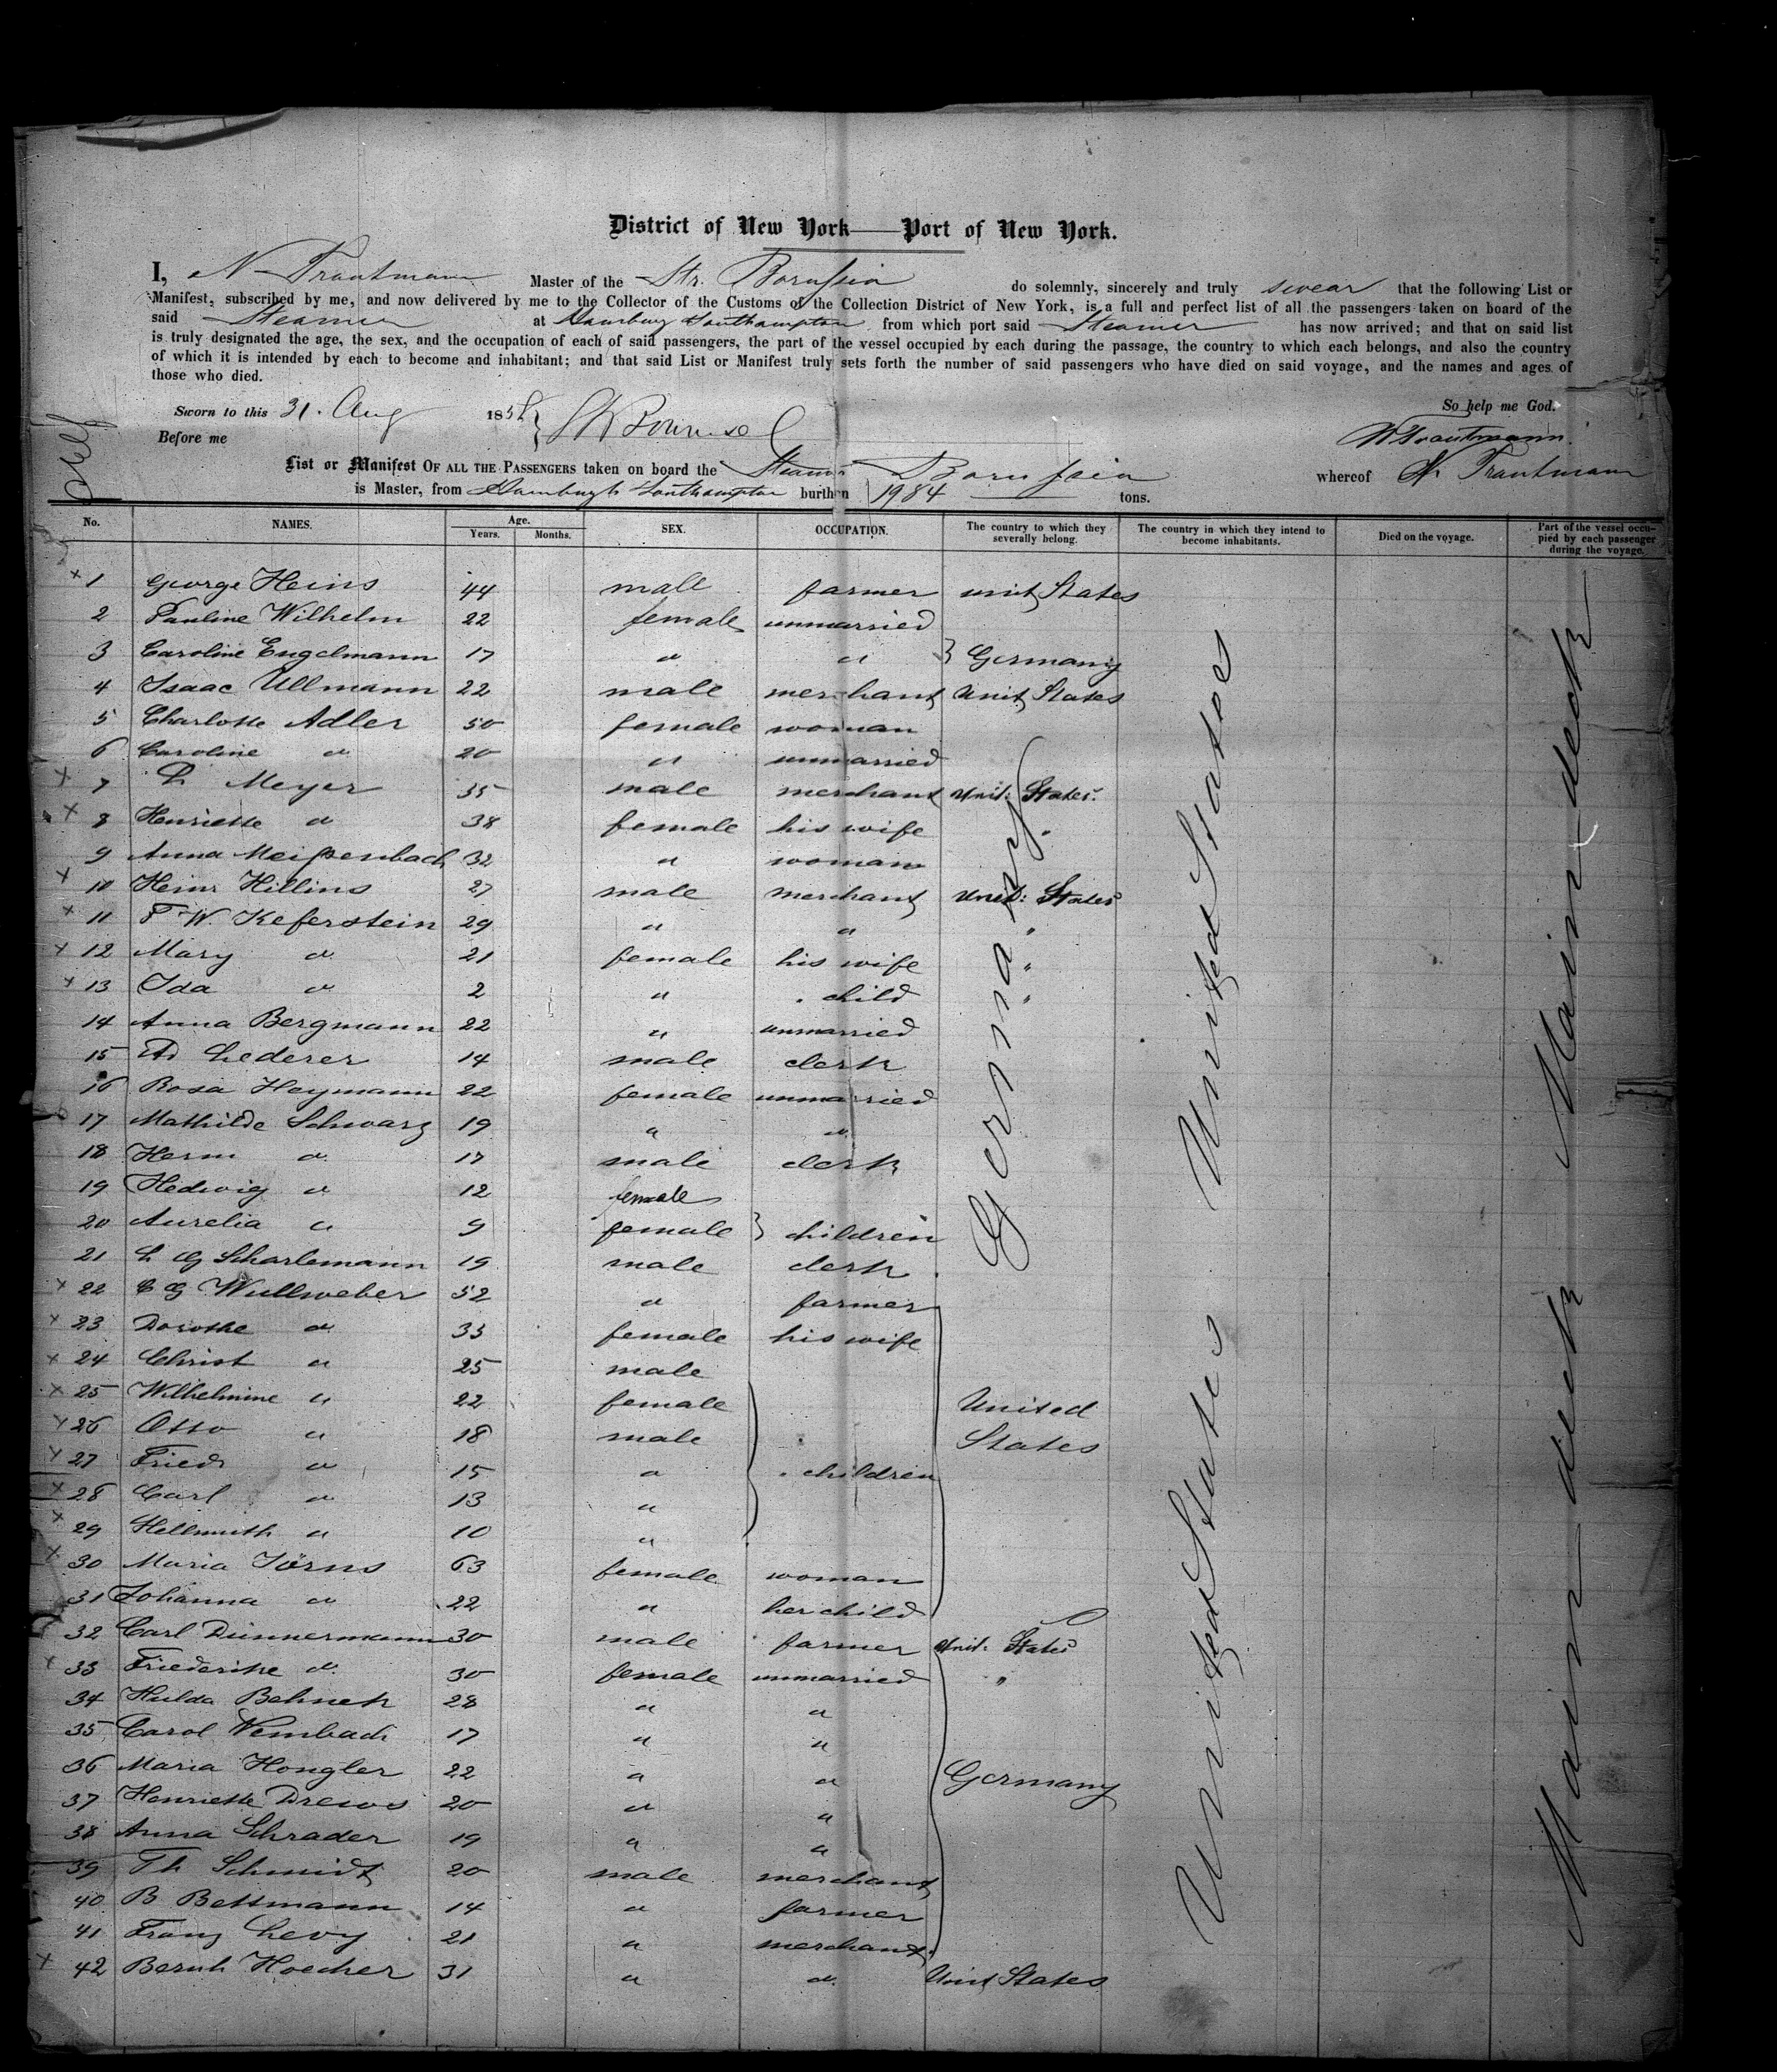 District of New York—Port of New York.
I, N Trautmann Master of the Str. Borussia do solemnly, sincerely and truly swear that the following List or
Manifest, subscribed by me, and now delivered by me to the Collector of the Customs of the Collection District of New York, is a full and perfect list of all the passengers taken on board of the
said Steamer at Hamburg Southampton from which port said Steamer has now arrived; and that on said list
is truly designated the age, the sex, and the occupation of each of said passengers, the part of the vessel occupied by each during the passage, the country to which each belongs, and also the country
of which it is intended by each to become and inhabitant; and that said List or Manifest truly sets forth the number of said passengers who have died on said voyage, and the names and ages of
those who died.
So help me God.
Sworn to this 31. Aug 185
Before me
N Trautmann.
List or Manifest OF ALL THE PASSENGERS taken on board the Steamer Borussia whereof N. Trautmann
is Master, from Hamburgh Southampton burthen 1984 tons.
No. NAMES. Age. Years. Months. SEX. OCCUPATION. The country to which they severally belong. The country in which they intend to become inhabitants. Died on the voyage. Part of the vessel occupied by each passenger during the voyage.
1 George Heins 44 male farmer unit States
2 Pauline Wilhelm 22 female unmarried
3 Caroline Engelmann 17 " " } Germany
4 Isaac Ullmann 22 male merchant Unit States
5 Charlotte Adler 50 female woman
6 Caroline " 20 " unmarried
7 L Meyer 35 male merchant Unit: States.
8 Henriette " 38 female his wife "
9 Anna Meißenbach 32 " woman
10 Heinr Hillins 27 male merchant Unit: States
11 F W. Keferstein 29 " " "
12 Mary " 21 female his wife "
13 Ida " 2 " " child "
14 Anna Bergmann 22 " unmarried
15 Ad Lederer 14 male clerk
16 Rosa Heymann 22 female unmarried
17 Mathilde Schwarz 19 " "
18 Herm " 17 male clerk
19 Hedwig " 12 female
20 Aurelia " 9 female } children
21 L G Scharlemann 19 male clerk
22 C G Wullweber 52 " farmer
23 Dorothe " 53 female his wife
24 Christ " 25 male
25 Wilhelmine " 22 female United
26 Otto " 18 male States
27 Friedr " 15 " " children
28 Carl " 13 "
29 Hellmuth " 10 "
30 Maria Jörns 63 female woman
31 Johanna " 22 " her child
32 Carl Dünnermann 30 male farmer Unit: States
33 Friederike " 30 female unmarried "
34 Hulda Behnek 28 " "
35 Carol Wembach 17 " "
36 Maria Hongler 22 " " Germany
37 Henriette Drews 20 " "
38 Anna Schrader 19 " "
39 Th Schmidt 20 male merchant
40 B Bettmann 14 " farmer
41 Franz Levy 21 " merchant
42 Bernh Hoecher 31 " " Unit States
Germany
United States
United States
Main deck
Main deck